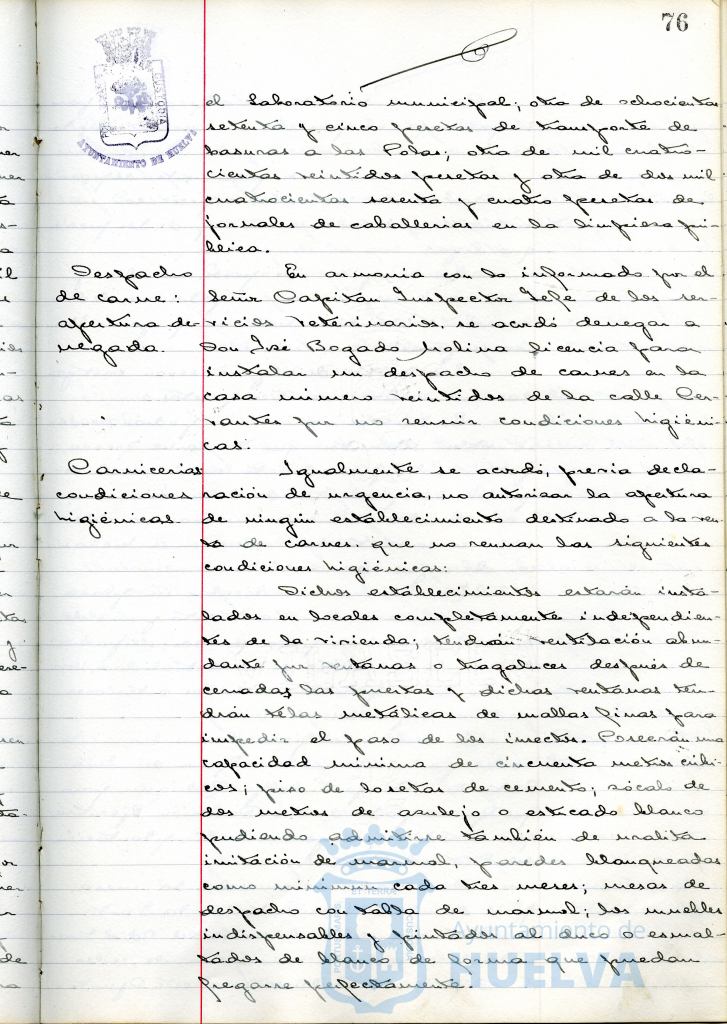 76
AYUNTAMIENTO DE HUELVA
el Laboratorio municipal; otra de ochocientas
setenta y cinco pesetas de transporte de
basuras a las Polas; otra de mil cuatro-
cientas veintidos pesetas y otra de dos mil
cuatrocientas sesenta y cuatro pesetas de
jornales de caballerias en la limpieza pú-
blica.
Despacho
de carne:
apertura de-
negada.
En armonia con lo informado por el
Señor Capitán Inspector Jefe de los ser-
vicios Veterinarios, se acordó denegar a
Don José Bogado Molina licencia para
instalar un despacho de carnes en la
casa número veintidos de la calle Cer-
vantes por no reunir condiciones higiéni-
cas.
Carnicerias
condiciones
higiénicas.
Igualmente se acordó, previa decla-
ración de urgencia, no autorizar la apertura
de ningún establecimiento destinado a la ven-
ta de carnes que no reunan las siguientes
condiciones higiénicas:
Dichos establecimientos estarán insta-
lados en locales completamente independien-
tes de la vivienda; tendrán ventilación abun-
dante por ventanas o tragaluces después de
cerradas las puertas y dichas ventanas ten-
drán telas metálicas de mallas finas para
impedir el paso de los insectos. Poseerán una
capacidad minima de cincuenta metros cúbi-
cos; piso de losetas de cemento; zócalo de
dos metros de azulejo o esticado blanco
pudiendo admitirse también de uralita
imitación de marmol, paredes blanqueadas
como minimun cada tres meses; mesas de
despacho con tabla de marmol; los muebles
indispensables y pintados al duco o esmal-
tados de blanco de forma que puedan
fregarse perfectamente.
Ayuntamiento de
HUELVA